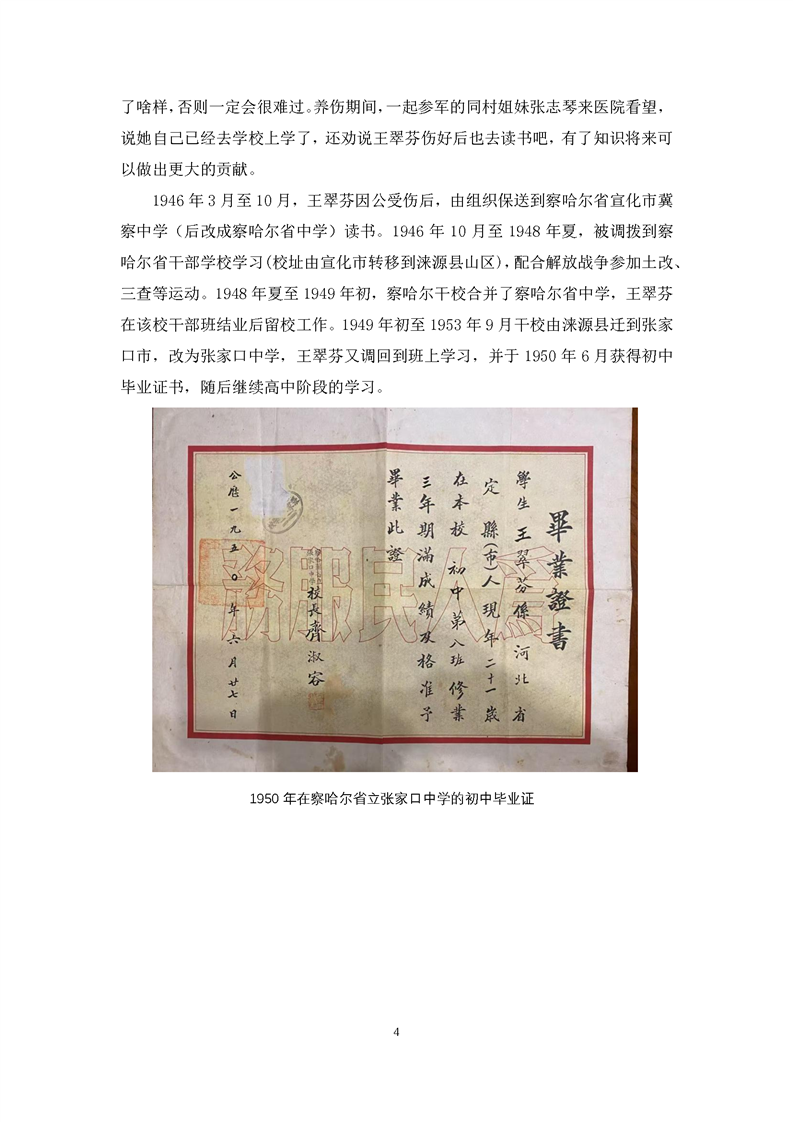 了啥样，否则一定会很难过。养伤期间，一起参军的同村姐妹张志琴来医院看望，
说她自己已经去学校上学了，还劝说王翠芬伤好后也去读书吧，有了知识将来可
以做出更大的贡献。
1946 年 3 月至 10 月，王翠芬因公受伤后，由组织保送到察哈尔省宣化市冀
察中学（后改成察哈尔省中学）读书。1946 年 10 月至 1948 年夏，被调拨到察
哈尔省干部学校学习(校址由宣化市转移到涞源县山区)，配合解放战争参加土改、
三查等运动。1948 年夏至 1949 年初，察哈尔干校合并了察哈尔省中学，王翠芬
在该校干部班结业后留校工作。1949 年初至 1953 年 9 月干校由涞源县迁到张家
口市，改为张家口中学，王翠芬又调回到班上学习，并于 1950 年 6 月获得初中
毕业证书，随后继续高中阶段的学习。
畢業證書
學生王翠芬係河北省
定縣(市)人現年二十一歲
在本校初中第八班修業
三年期滿成績及格准予
畢業此證
校長齊淑容
公曆一九五〇年六月廿七日
為人民服務
1950 年在察哈尔省立张家口中学的初中毕业证
4